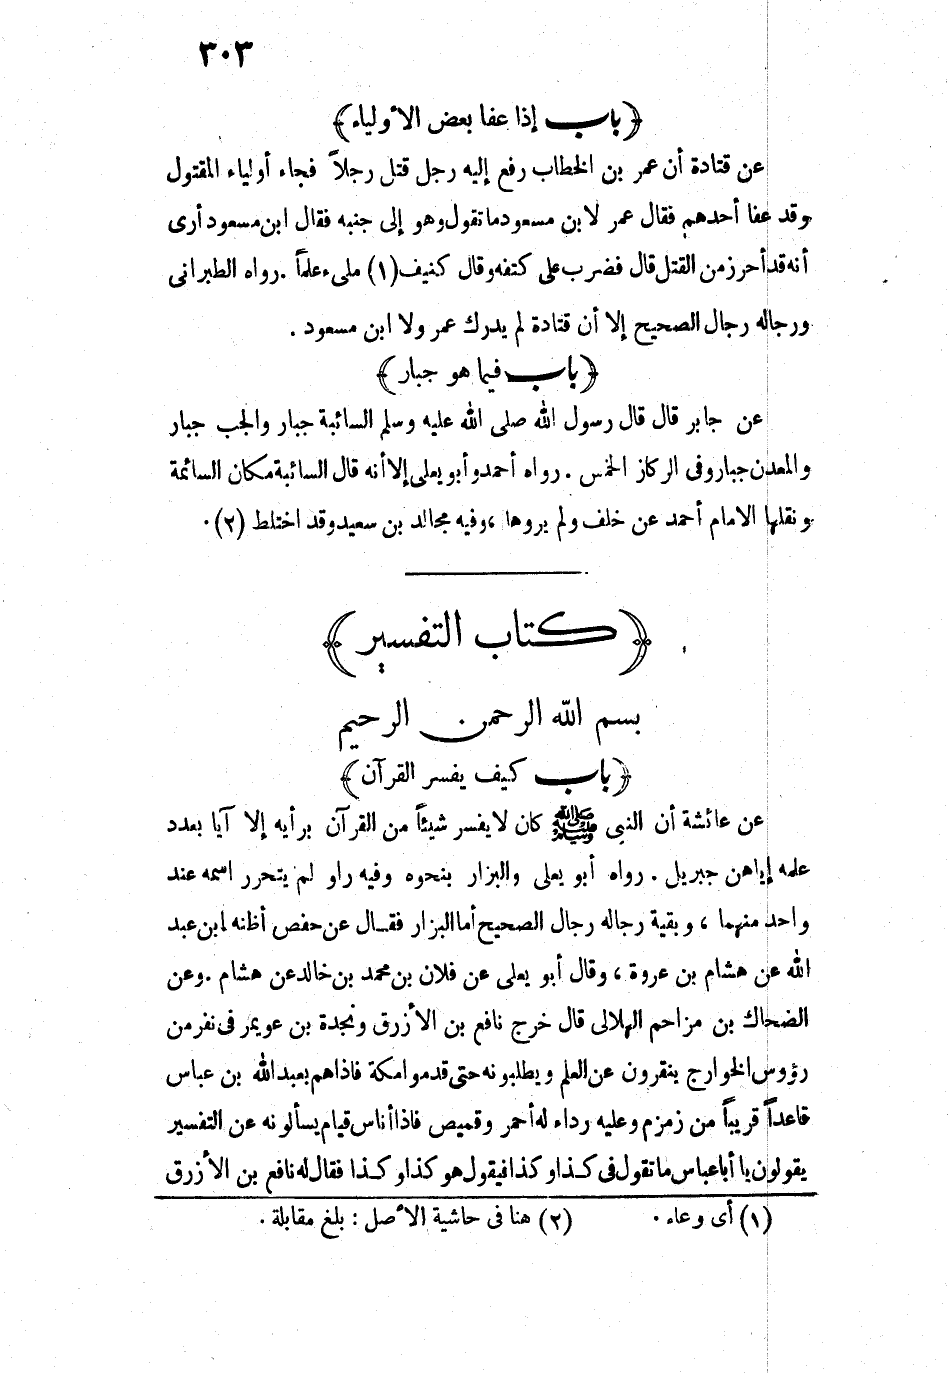 ٣٠٣
﴿باب إذا عفا بعض الأولياء﴾
عن قتادة أن عمر بن الخطاب رفع إليه رجل قتل رجلاً فجاء أولياء المقتول
وقد عفا أحدهم فقال عمر لابن مسعود ما تقول وهو إلى جنبه فقال ابن مسعود أرى
أنه قد أحرز من القتل قال فضرب على كتفه وقال كنيف (١) ملىء علماً . رواه الطبرانى
ورجاله رجال الصحيح إلا أن قتادة لم يدرك عمر ولا ابن مسعود .
﴿باب فيما هو جبار﴾
عن جابر قال قال رسول الله صلى الله عليه وسلم السائبة جبار والجب جبار
والمعدن جبار وفى الركاز الخمس . رواه أحمد وأبو يعلى إلا أنه قال السائبة مكان السائمة
ونقلها الامام أحمد عن خلف ولم يروها ، وفيه مجالد بن سعيد وقد اختلط (٢) .
﴿كتاب التفسير﴾
بسم الله الرحمن الرحيم
﴿باب كيف يفسر القرآن﴾
عن عائشة أن النبى ﷺ كان لا يفسر شيئاً من القرآن برأيه إلا آيا بعدد
علمه إياهن جبريل . رواه أبو يعلى والبزار بنحوه وفيه راو لم يتحرر اسمه عند
واحد منهما ، وبقية رجاله رجال الصحيح أما البزار فقال عن حفص أظنه ابن عبد
الله عن هشام بن عروة ، وقال أبو يعلى عن فلان بن محمد بن خالد عن هشام . وعن
الضحاك بن مزاحم الهلالى قال خرج نافع بن الأزرق ونجدة بن عويمر فى نفر من
رؤوس الخوارج ينقرون عن العلم ويطلبونه حتى قدموا مكة فاذا هم بعبد الله بن عباس
قاعداً قريباً من زمزم وعليه رداء له أحمر وقميص فاذا أناس قيام يسألونه عن التفسير
يقولون يا أبا عباس ما تقول فى كذا وكذا فيقول هو كذا وكذا فقال له نافع بن الأزرق
(١) أى وعاء . (٢) هنا فى حاشية الأصل : بلغ مقابلة .